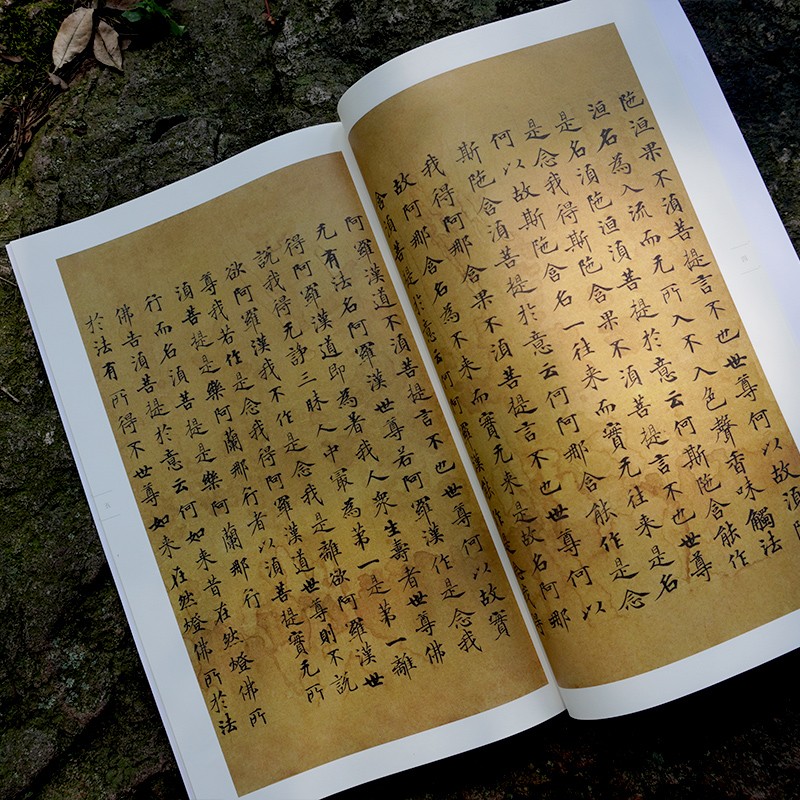 陁洹果不湏菩提言不也世尊何以故湏
洹名為入流而无所入不入色聲香味觸法
是名湏陁洹湏菩提於意云何斯陁含能作
是念我得斯陁含果不湏菩提言不也世尊
何以故斯陁含名一往来而實无往来是名
斯陁含湏菩提於意云何阿那含能作是念
我得阿那含果不湏菩提言不也世尊何以
故阿那含名為不来而實无来是故名阿那
含湏菩提於意云何阿羅漢能作是念我得
阿羅漢道不湏菩提言不也世尊何以故實
无有法名阿羅漢世尊若阿羅漢作是念我
得阿羅漢道即為着我人衆生壽者世尊佛
說我得无諍三昧人中冣為第一是第一離
欲阿羅漢我不作是念我是離欲阿羅漢世
尊我若作是念我得阿羅漢道世尊則不說
湏菩提是樂阿蘭那行者以湏菩提實无所
行而名湏菩提是樂阿蘭那行
佛告湏菩提於意云何如来昔在然燈佛所
於法有所得不世尊如来在然燈佛所於法